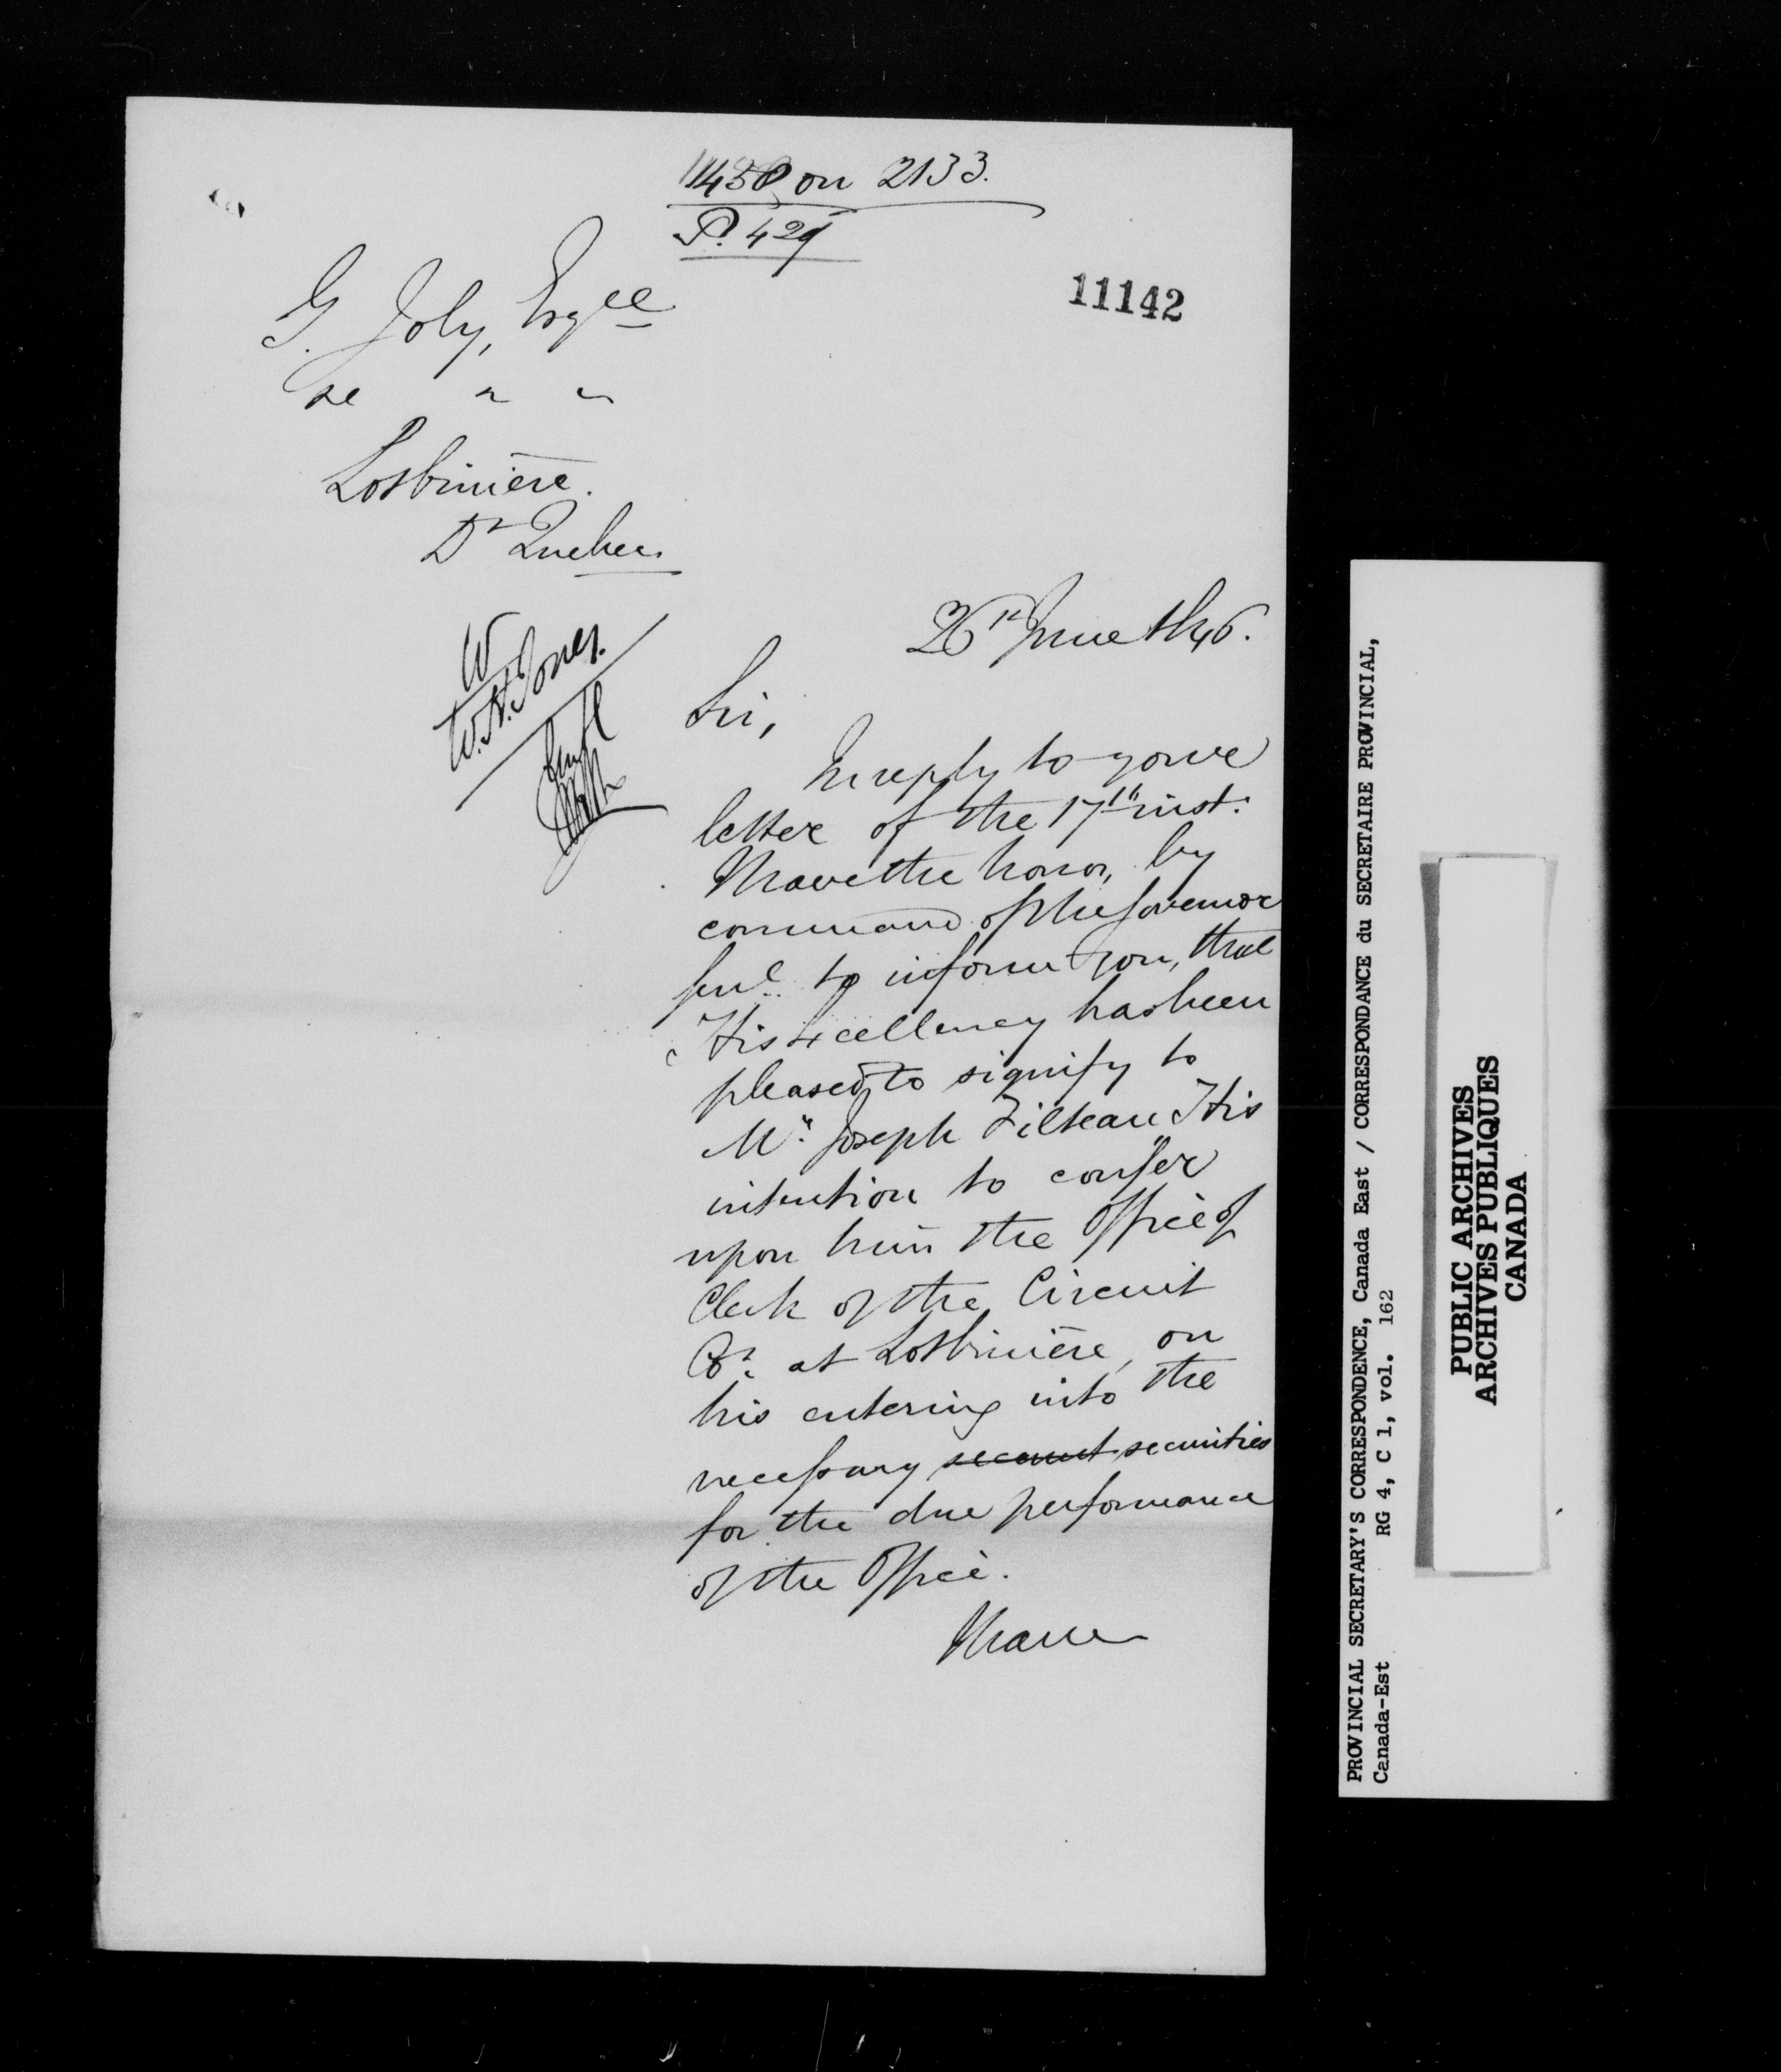 1458 on 2133.
P. 429
11142
G. Joly, Esqre
&c " "
Lotbinière.
Dt Quebec
26th June 1846.
W
W.H. Jones.
Sir,
In reply to your
letter of the 17th inst:
I have the honor, by
command of the Governor
Genl. to inform you, that
His Excellency has been
pleased to signify to
Mr. Joseph Filteau His
intention to confer
upon him the Office of
Clerk of the Circuit
Ct. at Lotbinière, on
his entering into the
necessary securities
for the due performance
of the Office.
I have
PROVINCIAL SECRETARY'S CORRESPONDENCE, Canada East / CORRESPONDANCE du SECRETAIRE PROVINCIAL,
Canada-Est RG 4, C 1, vol. 162
PUBLIC ARCHIVES
ARCHIVES PUBLIQUES
CANADA